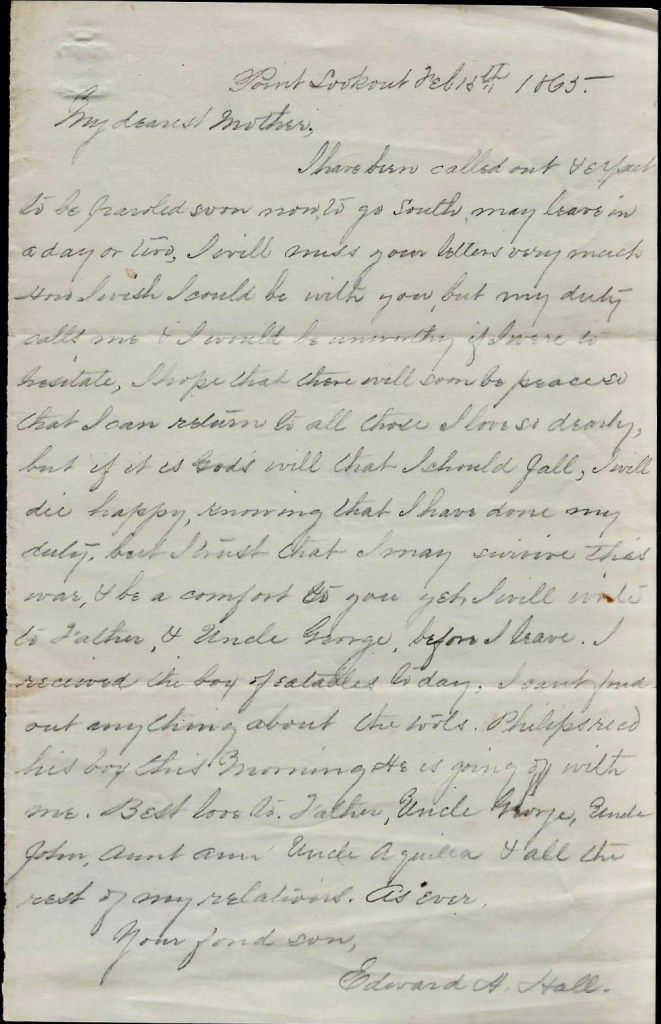 Point Lookout Feb 15th, 1865.
My dearest Mother,
I have been called out & expect
to be paroled soon now, to go South, may leave in
a day or two, I will miss your letters very much
How I wish I could be with you, but my duty
calls me & I would be unworthy if I were to
hesitate, I hope that there will soon be peace so
that I can return to all those I love so dearly,
but if it is God's will that I should fall, I will
die happy, knowing that I have done my
duty, but I trust that I may survive this
war, & be a comfort to you yet, I will write
to Father, & Uncle George, before I leave. I
received the box of eatables to day. I cant find
out anything about the tools. Philips recd
his box this Morning He is going off with
me. Best love to Father, Uncle George, Uncle
John, Aunt Ann Uncle Aquilla & all the
rest of my relations. As ever,
Your fond son,
Edward H. Hall.